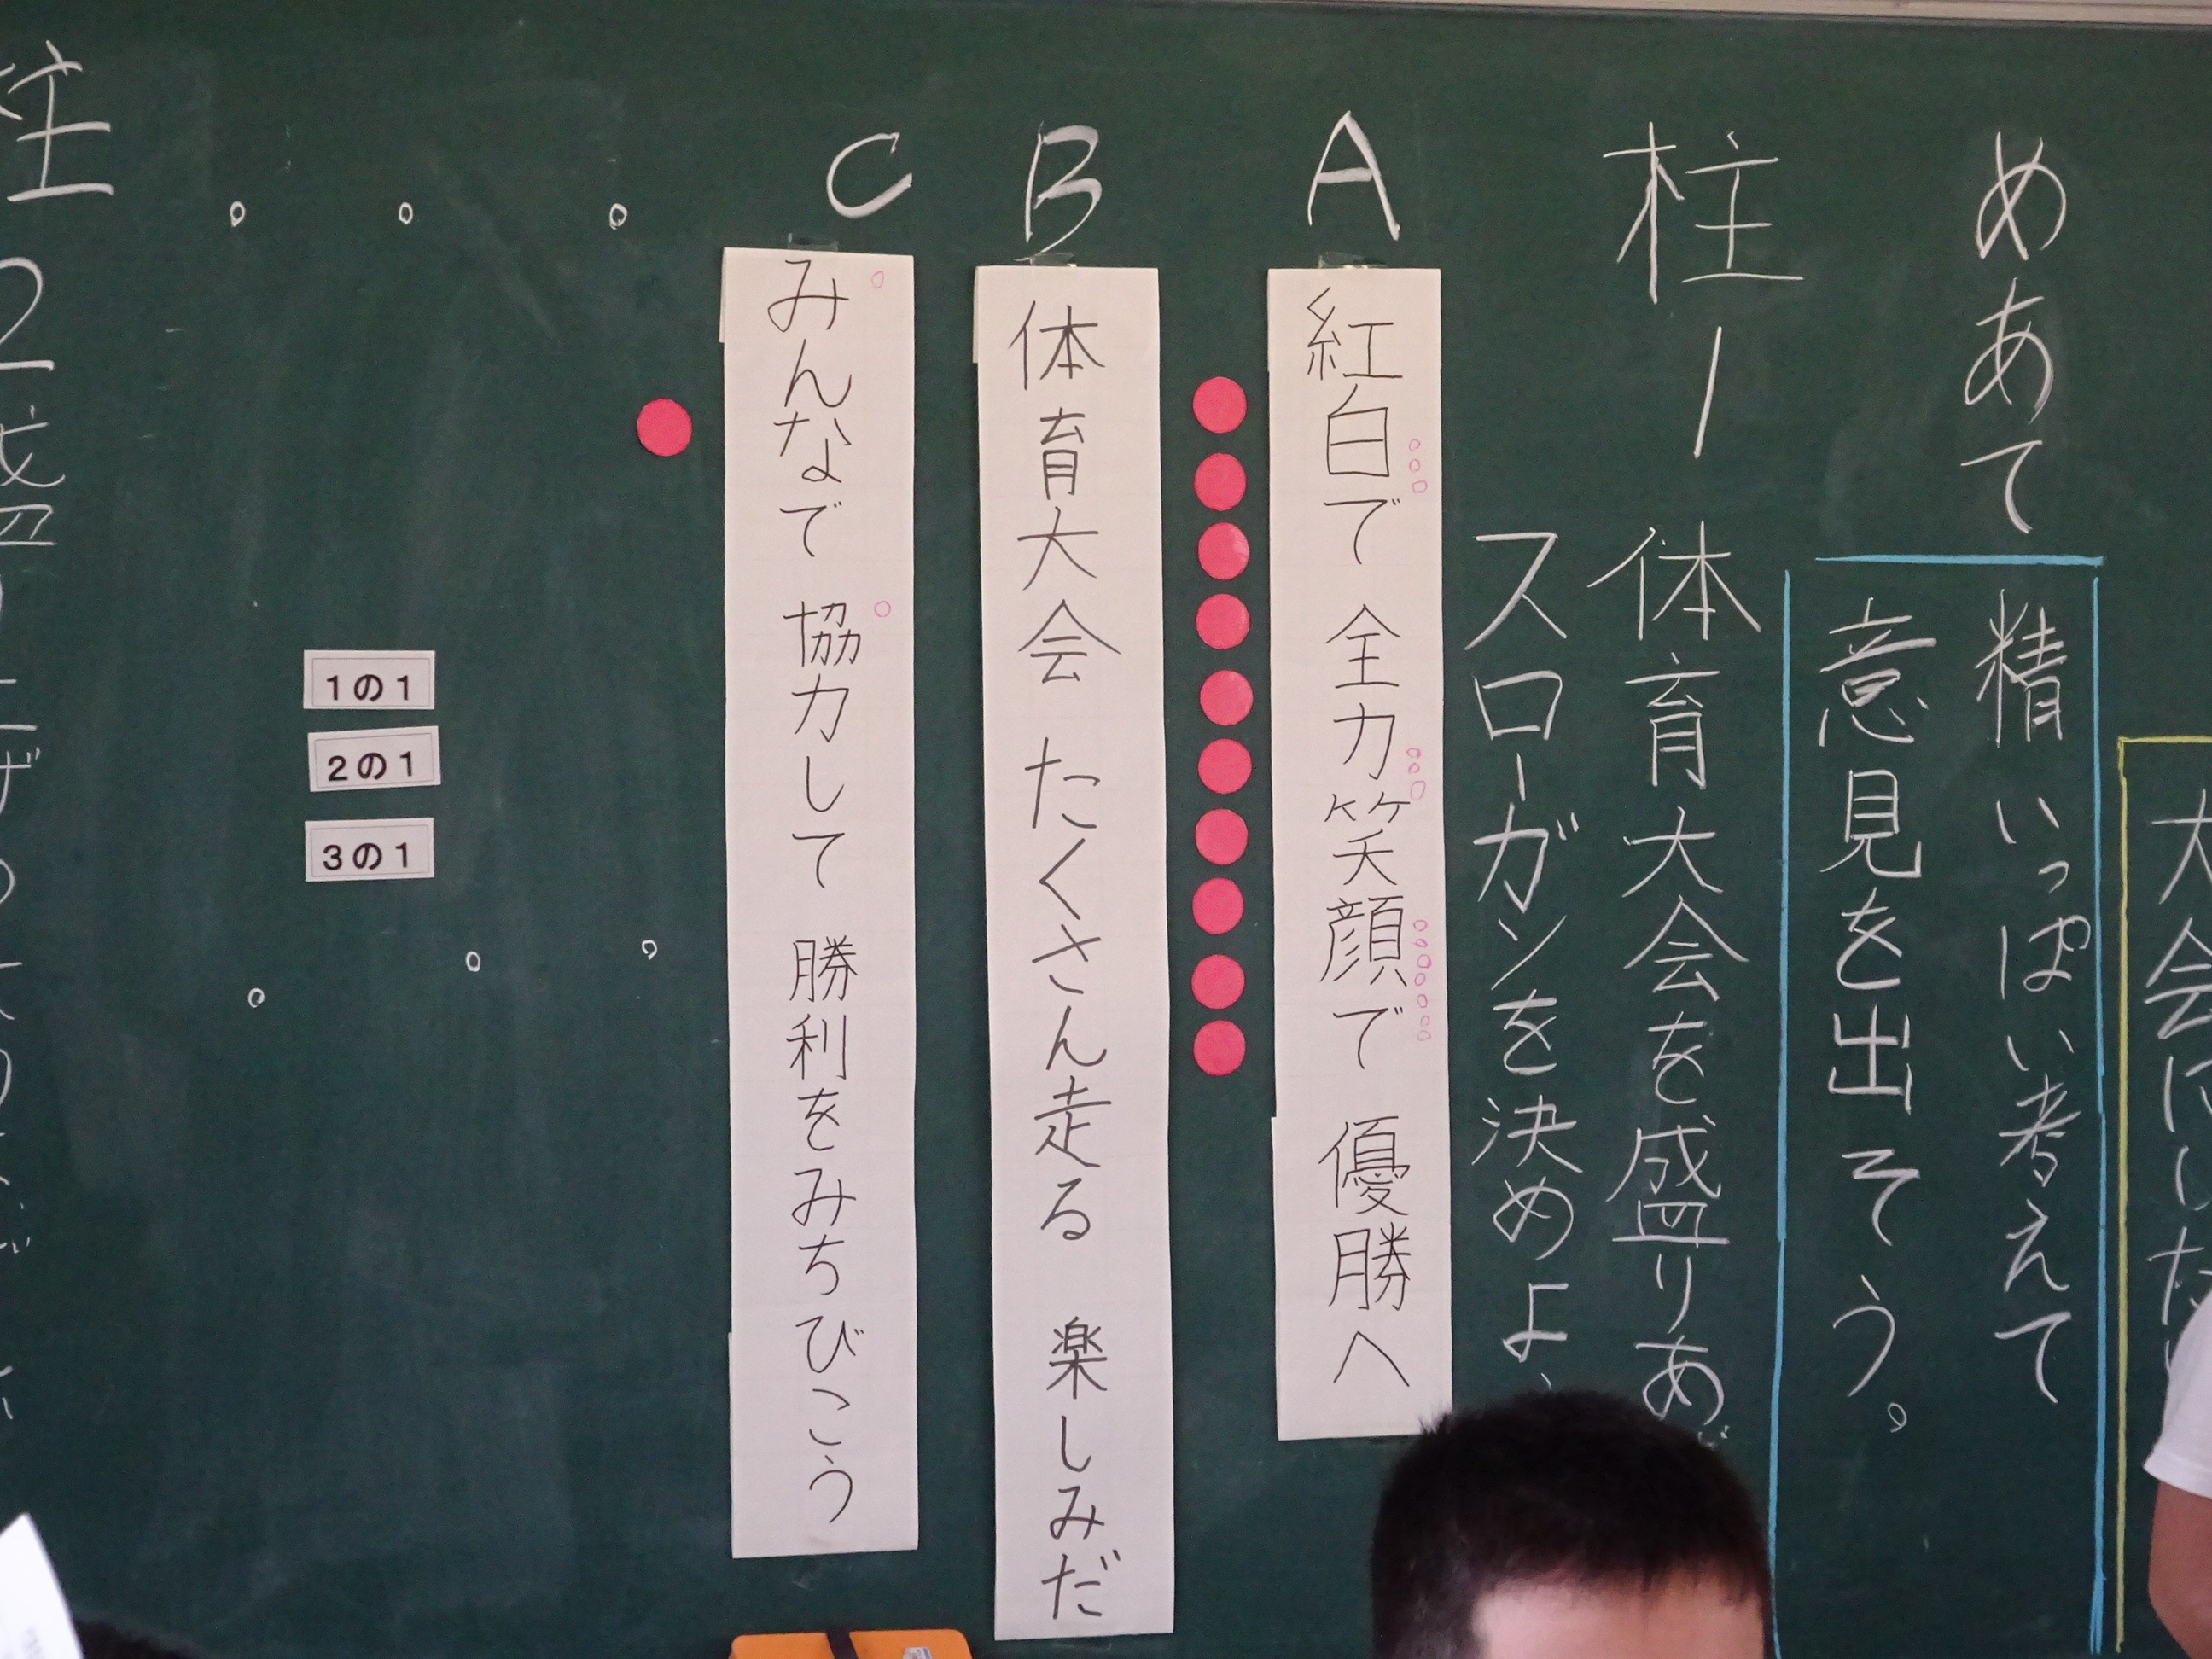 大会に
めあて
精いっぱい考えて
意見を出そう。
柱1
体育大会を盛りあ
スローガンを決めよ
A
紅白で 全力笑顔で 優勝へ
B
体育大会 たくさん走る 楽しみだ
C
みんなで 協力して 勝利をみちびこう
1の1
2の1
3の1
柱2
盛り上げ